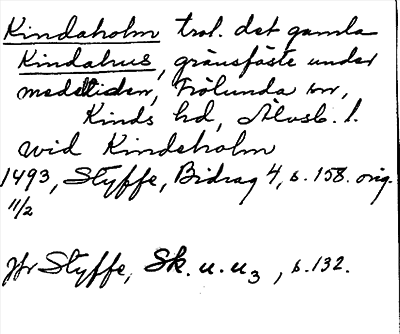 Kindaholm trol. det gamla
Kindahus, gränsfäste under
medeltiden, Frölunda sn,
Kinds hd, Älvsb. l.
wid Kindeholm
1493, Styffe, Bidrag 4, s. 158. orig.
11/2
Jfr Styffe, Sk. u. u3, s. 132.